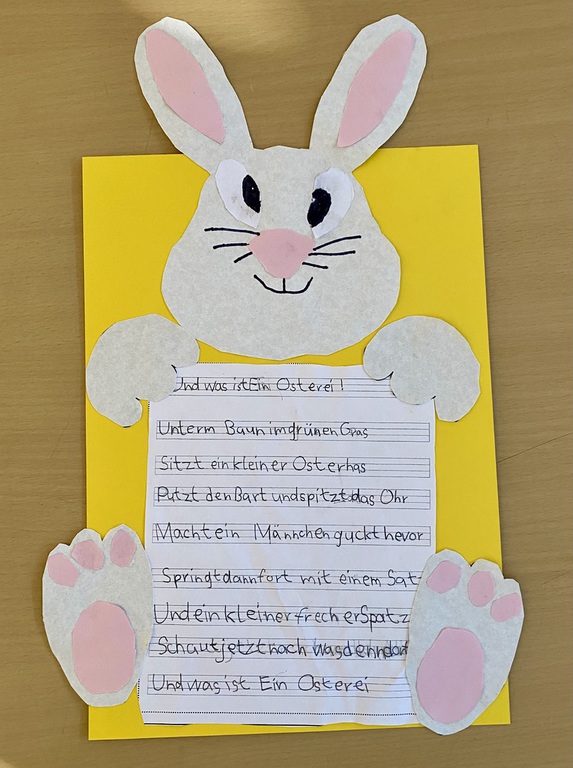 Und was ist Ein Osterei !
Unterm Baun im grünen Gras
Sitzt ein kleiner Osterhas
Putzt den Bart und spitzt das Ohr
Macht ein Männchen guckt hevor
Springt dann fort mit einem Sat
Und ein kleiner frecher Spatz
Schaut jetzt nach was denn dort
Und was ist Ein Osterei